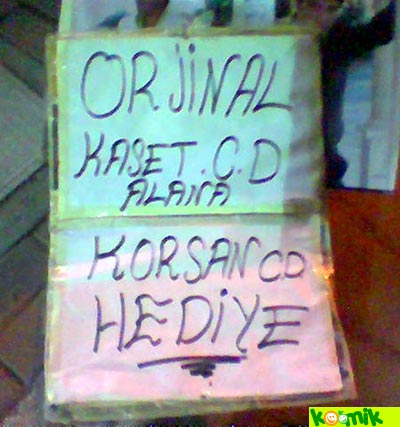 ORJİNAL
KASET.C.D
ALANA
KORSAN CD
HEDİYE
komik